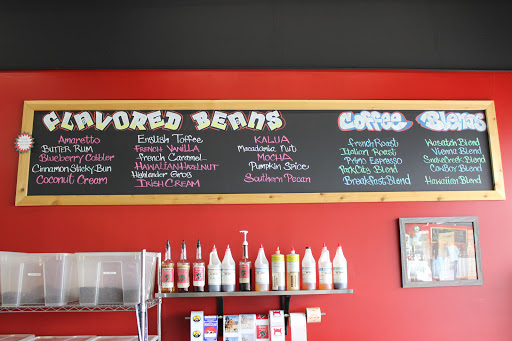 FLAVORED BEANS
Amaretto
BUTTER RUM
Blueberry Cobbler
Cinnamon Sticky Bun
Coconut Cream
English Toffee
FRENCH VANILLA
French Caramel
HAWAIIAN HAZLNUT
Highlander Grog
IRISH CREAM
KALUA
Macadamia Nut
MOCHA
Pumpkin Spice
Southern Pecan
Coffee Blends
French Roast
Italian Roast
Primo Espresso
Park City Blend
Breakfast Blend
Wasatch Blend
Vienna Blend
Snake Creek Blend
Cowboy Blend
Hawaiian Blend